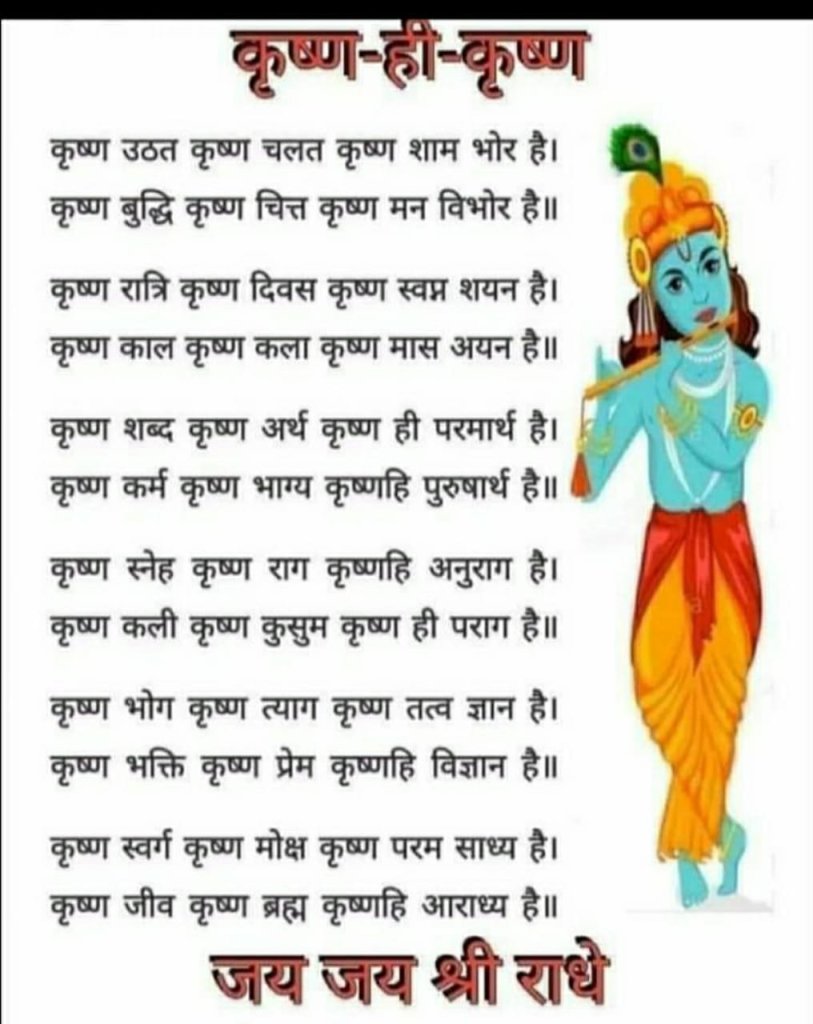 कृष्ण-ही-कृष्ण
कृष्ण उठत कृष्ण चलत कृष्ण शाम भोर है।
कृष्ण बुद्धि कृष्ण चित्त कृष्ण मन विभोर है॥
कृष्ण रात्रि कृष्ण दिवस कृष्ण स्वप्न शयन है।
कृष्ण काल कृष्ण कला कृष्ण मास अयन है॥
कृष्ण शब्द कृष्ण अर्थ कृष्ण ही परमार्थ है।
कृष्ण कर्म कृष्ण भाग्य कृष्णहि पुरुषार्थ है॥
कृष्ण स्नेह कृष्ण राग कृष्णहि अनुराग है।
कृष्ण कली कृष्ण कुसुम कृष्ण ही पराग है॥
कृष्ण भोग कृष्ण त्याग कृष्ण तत्व ज्ञान है।
कृष्ण भक्ति कृष्ण प्रेम कृष्णहि विज्ञान है॥
कृष्ण स्वर्ग कृष्ण मोक्ष कृष्ण परम साध्य है।
कृष्ण जीव कृष्ण ब्रह्म कृष्णहि आराध्य है॥
जय जय श्री राधे